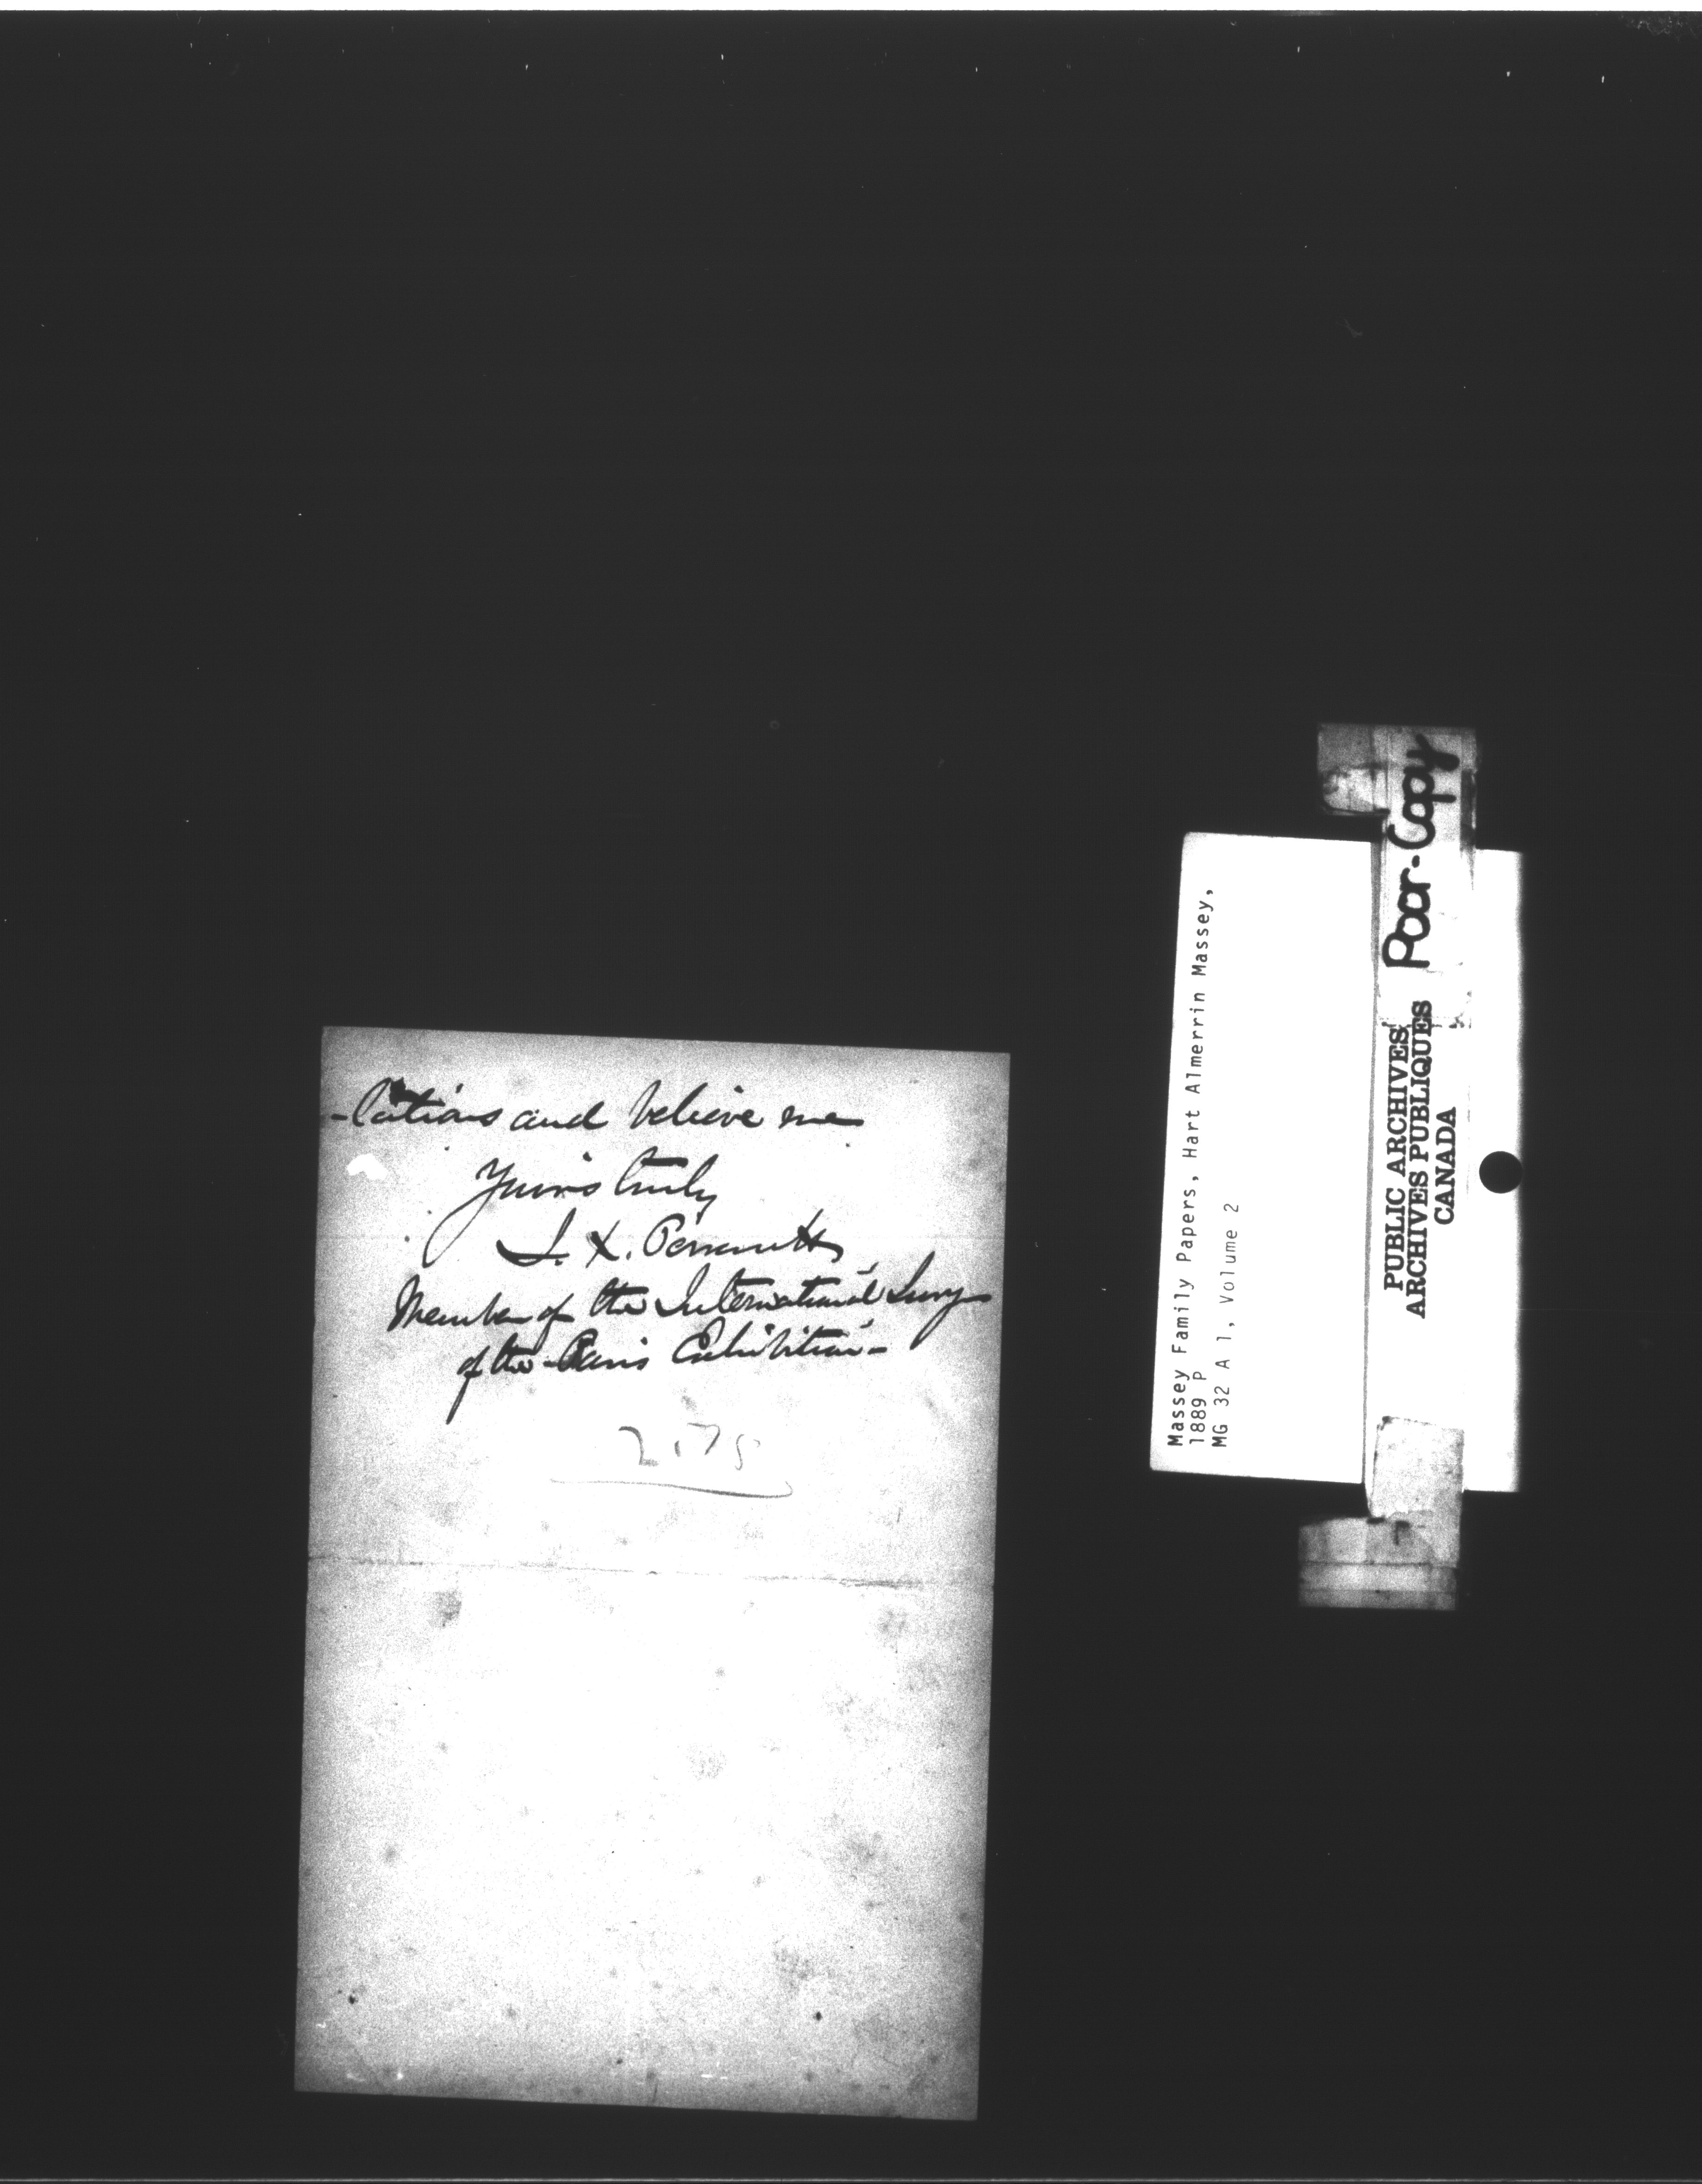 -lations and believe me
Yours truly
J. X. Perrault
Member of the International Jury
of the Paris Exhibition-
2.75
Massey Family Papers, Hart Almerrin Massey,
1889 P
MG 32 A 1, Volume 2
Poor-Copy
PUBLIC ARCHIVES
ARCHIVES PUBLIQUES
CANADA